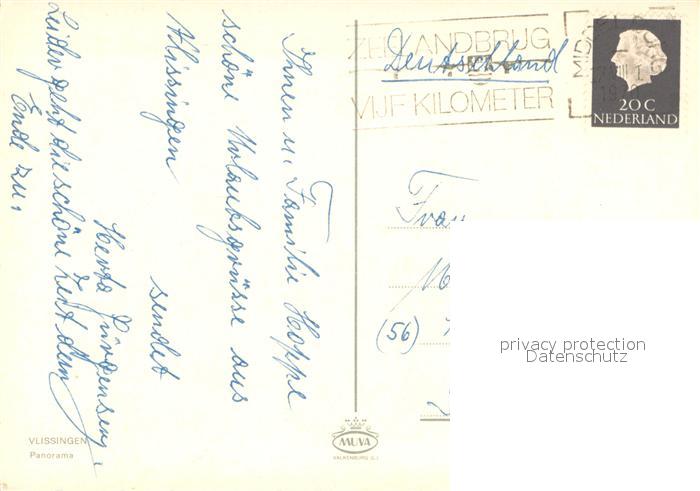 Ihnen u. Familie Hoppe
schöne Urlaubsgrüsse aus
Vlissingen sendet
Herta
Leider geht die schöne Zeit dem
Ende zu.
VLISSINGEN
Panorama
MUVA
VALKENBURG
Deutschland
ZEELANDBRUG
VIJF KILOMETER
MIDDELBURG
20 C
NEDERLAND
Frau
(56)
privacy protection
Datenschutz